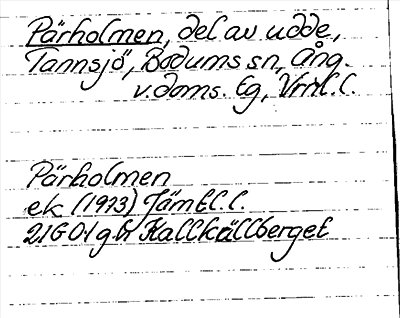 Pärholmen, del av udde,
Tannsjö, Bodums sn, Ång.
v.doms. Eg, Vrml.l.
Pärholmen
ek (1973) Jämtl.l.
21G 01 g h Kallkällberget